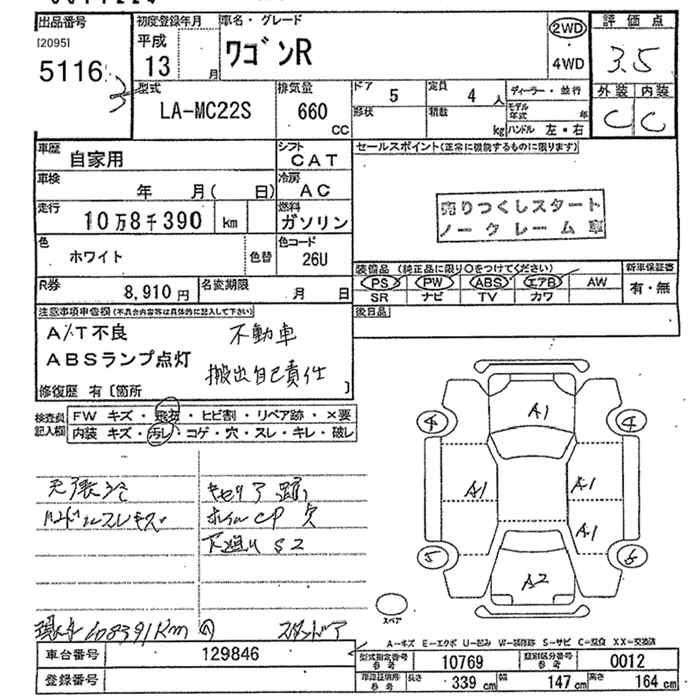 出品番号
[2095]
5116
初度登録年月
平成
13 月
車名・グレード
ワゴンR
2WD
4WD
評価点
3.5
外装 内装
C C
型式
LA-MC22S
排気量
660
CC
ドア
5
定員
4 人
ディーラー・並行
形状
積載
kg
モデル
年式
年
ハンドル 左・右
車歴
自家用
シフト
CAT
セールスポイント(正常に機能するものに限ります)
車検
年 月( 日)
冷房
AC
売りつくしスタート
ノークレーム車
走行
10万8千390 km
燃料
ガソリン
色
ホワイト
色替
色コード
26U
装備品 (純正品に限り○をつけてください)
新車保証書
PS PW ABS エアB AW
有・無
SR ナビ TV カワ
R券
8,910 円
名変期限
月 日
後日品
注意事項申告欄(不具合内容等は具体的に記入して下さい)
A/T不良 不動車
ABSランプ点灯
搬出自己責任
修復歴 有〔箇所 〕
検査員
記入欄
FW キズ・飛石・ヒビ割・リペア跡・×要
内装 キズ・汚レ・コゲ・穴・スレ・キレ・破レ
A1
4 4
A1 A1
A1
5 6
A2
スペア
ハンドルスレキズ
下廻りS2
108391Km
A-キズ E-エクボ U-凹み W-補修跡 S-サビ C-腐食 XX-交換済
車台番号
129846
型式指定番号
参考
10769
類別区分番号
参考
0012
登録番号
車検証記載
参考
長さ 339 cm
幅 147 cm
高さ 164 cm